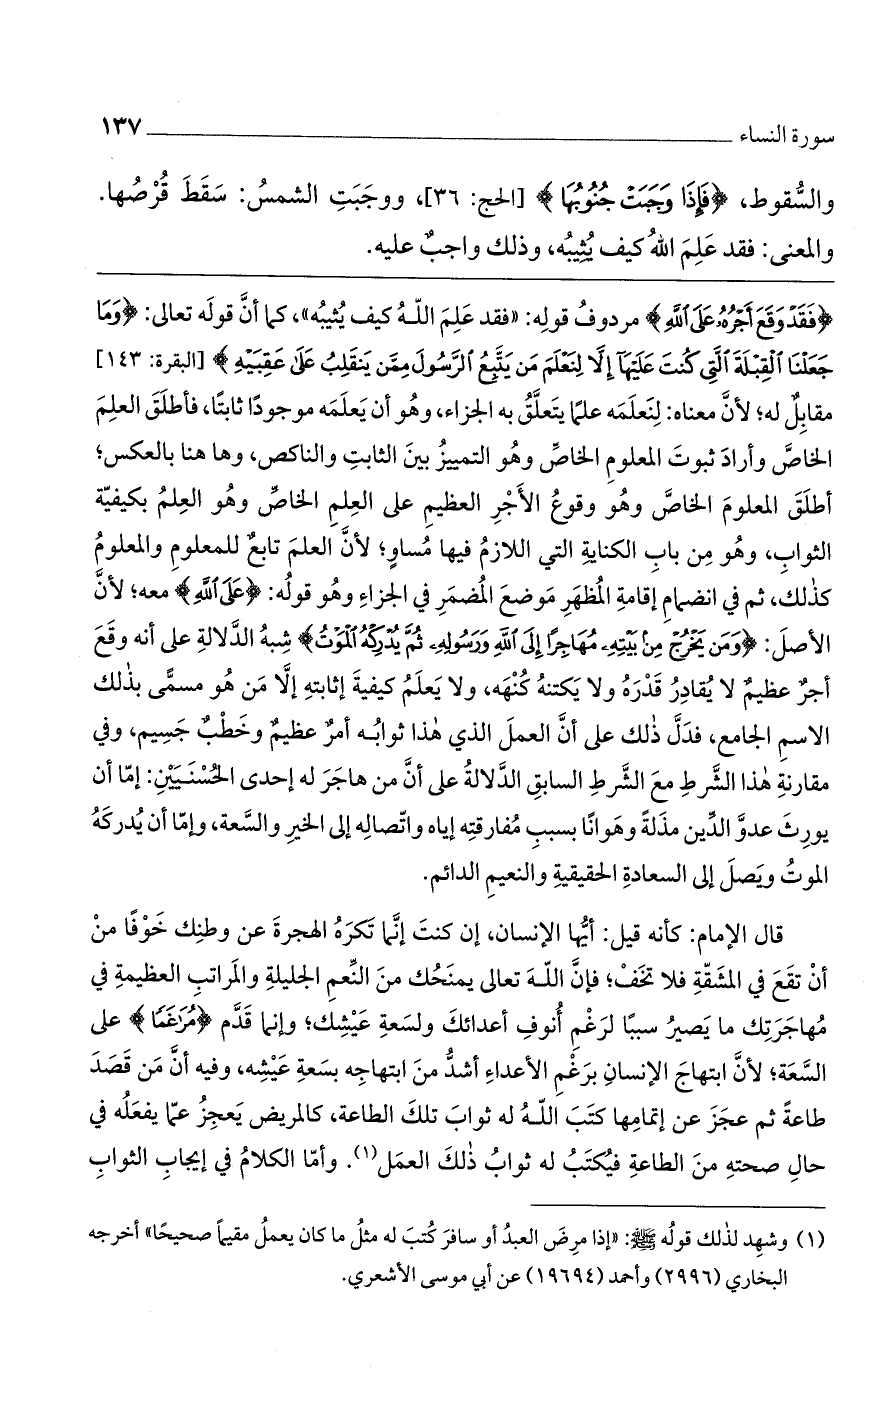 سورة النساء ــــــــــ ١٣٧
والسُّقوط، ﴿فَإِذَا وَجَبَتْ جُنُوبُهَا﴾ [الحج: ٣٦]، ووجَبَتِ الشمسُ: سَقَطَ قُرْصُها.
والمعنى: فقد عَلِمَ اللهُ كيف يُثِيبُه، وذلك واجبٌ عليه.
﴿فَقَدْ وَقَعَ أَجْرُهُۥ عَلَى ٱللَّهِ﴾ مردوفُ قولِه: «فقد عَلِمَ اللّهُ كيف يُثيبُه»، كما أنَّ قولَه تعالى: ﴿وَمَا
جَعَلْنَا ٱلْقِبْلَةَ ٱلَّتِى كُنتَ عَلَيْهَآ إِلَّا لِنَعْلَمَ مَن يَتَّبِعُ ٱلرَّسُولَ مِمَّن يَنقَلِبُ عَلَىٰ عَقِبَيْهِ﴾ [البقرة: ١٤٣]
مقابِلٌ له؛ لأنَّ معناه: لِنَعلَمَه علمًا يتَعلَّقُ به الجزاء، وهُو أن يَعلَمَه موجودًا ثابتًا، فأطلَقَ العلِمَ
الخاصَّ وأرادَ ثبوتَ المعلومِ الخاصِّ وهُو التمييزُ بينَ الثابتِ والناكص، وها هنا بالعكس؛
أطلَقَ المعلومَ الخاصَّ وهُو وقوعُ الأَجْرِ العظيمِ على العِلمِ الخاصِّ وهُو العِلمُ بكيفيّة
الثوابِ، وهُو مِن بابِ الكنايةِ التي اللازمُ فيها مُساوٍ؛ لأنَّ العلمَ تابعٌ للمعلومِ والمعلومُ
كذٰلك، ثم في انضمامِ إقامةِ المُظهَرِ مَوضعَ المُضمَرِ في الجزاءِ وهُو قولُه: ﴿عَلَى ٱللَّهِ﴾ معه؛ لأنَّ
الأصلَ: ﴿وَمَن يَخْرُجْ مِنۢ بَيْتِهِۦ مُهَاجِرًا إِلَى ٱللَّهِ وَرَسُولِهِۦ ثُمَّ يُدْرِكْهُ ٱلْمَوْتُ﴾ شِبهُ الدَّلالةِ على أنه وقَعَ
أجرٌ عظيمٌ لا يُقادِرُ قَدْرَهُ ولا يَكتنهُ كُنْهَه، ولا يَعلَمُ كيفيةَ إثابتهِ إلَّا مَن هُو مسمًّى بذٰلك
الاسمِ الجامع، فدَلَّ ذٰلك على أنَّ العملَ الذي هٰذا ثوابُه أمرٌ عظيمٌ وخَطْبٌ جَسِيم، وفي
مقارنةِ هٰذا الشَّرطِ معَ الشَّرطِ السابقِ الدَّلالةُ على أنَّ من هاجَرَ له إحدى الحُسْنَيَيْنِ: إمّا أن
يورِثَ عدوَّ الدِّين مذَلةً وهَوانًا بسببِ مُفارقتِه إياه واتّصالِه إلى الخيرِ والسَّعة، وإمّا أن يُدركَهُ
الموتُ ويَصلَ إلى السعادةِ الحقيقيةِ والنعيمِ الدائم.
قال الإمام: كأنه قيل: أيُّها الإنسان، إن كنتَ إنَّما تَكرَهُ الهجرةَ عن وطنِك خَوْفًا منْ
أنْ تقَعَ في المشَقّةِ فلا تخَفْ؛ فإنَّ اللّهَ تعالى يمنَحُك منَ النِّعمِ الجليلةِ والمَراتبِ العظيمةِ في
مُهاجَرَتِك ما يَصيرُ سببًا لرَغْمِ أُنوفِ أعدائكَ ولسَعةِ عَيْشِك؛ وإنما قَدَّم ﴿مُرَٰغَمًا﴾ على
السَّعَة؛ لأنَّ ابتهاجَ الإنسانِ برَغْمِ الأعداءِ أشدُّ منَ ابتهاجِه بسَعةِ عَيْشِه، وفيه أنَّ مَن قَصَدَ
طاعةً ثم عجَزَ عن إتمامِها كتَبَ اللّهُ له ثوابَ تلكَ الطاعة، كالمريض يَعجِزُ عمّا يفعَلُه في
حالِ صحتهِ منَ الطاعةِ فيُكتَبُ له ثوابُ ذٰلكَ العمَل(١). وأمّا الكلامُ في إيجابِ الثوابِ
(١) وشهِد لذٰلك قولُه ﷺ: «إذا مرِضَ العبدُ أو سافرَ كُتبَ له مثلُ ما كان يعملُ مقيماً صحيحًا» أخرجه
البخاري (٢٩٩٦) وأحمد (١٩٦٩٤) عن أبي موسى الأشعري.